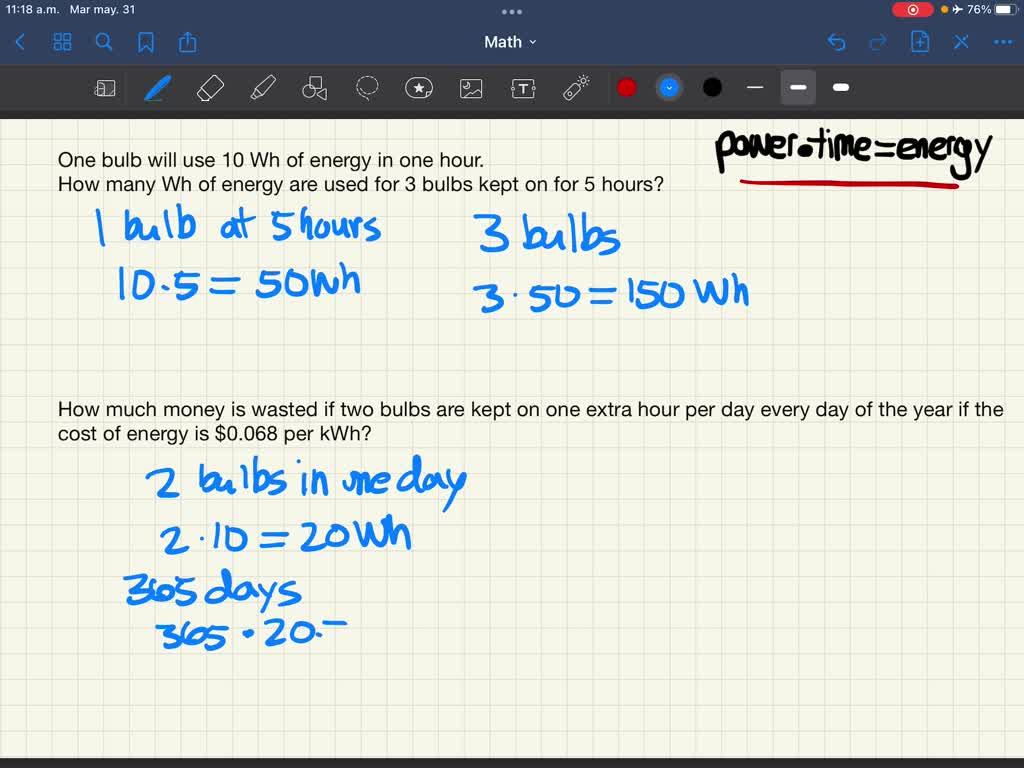 11:18 a.m. Mar may. 31
76%
Math
power•time=energy
One bulb will use 10 Wh of energy in one hour.
How many Wh of energy are used for 3 bulbs kept on for 5 hours?
1 bulb at 5 hours
10·5 = 50Wh
3 bulbs
3·50=150 Wh
How much money is wasted if two bulbs are kept on one extra hour per day every day of the year if the
cost of energy is $0.068 per kWh?
2 bulbs in one day
2·10 = 20Wh
365 days
365 · 20